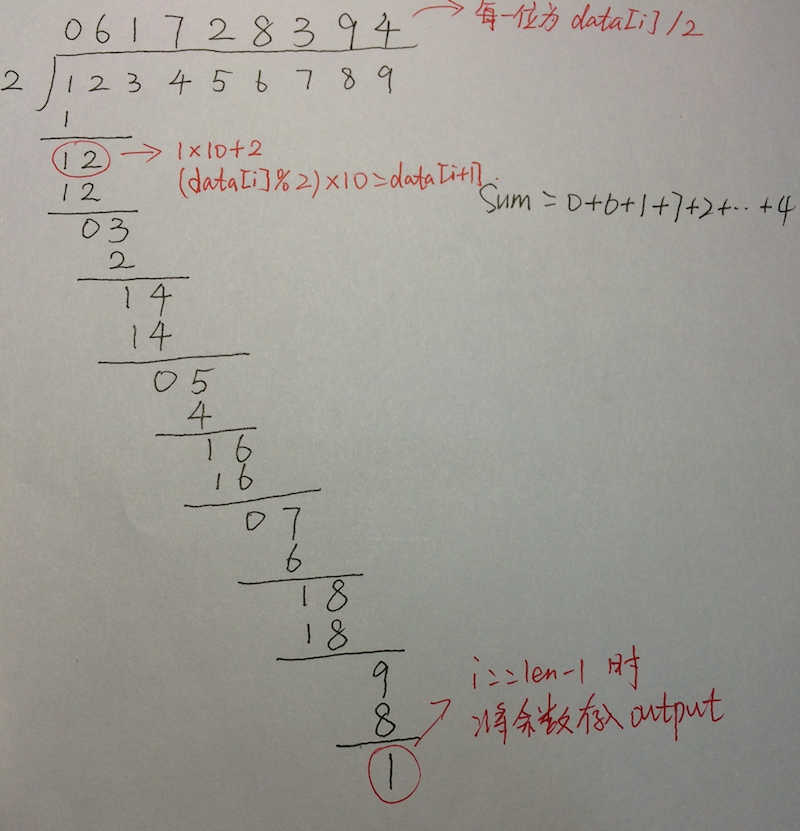 061728394
→ 每一位为 data[i]/2
2 123456789
1
12 → 1×10+2
(data[i]%2)×10=data[i+1].
12
Sum = 0+6+1+7+2+…+4
03
2
14
14
05
4
16
16
07
6
18
18
9
i==len-1 时
8
将余数存入output
1